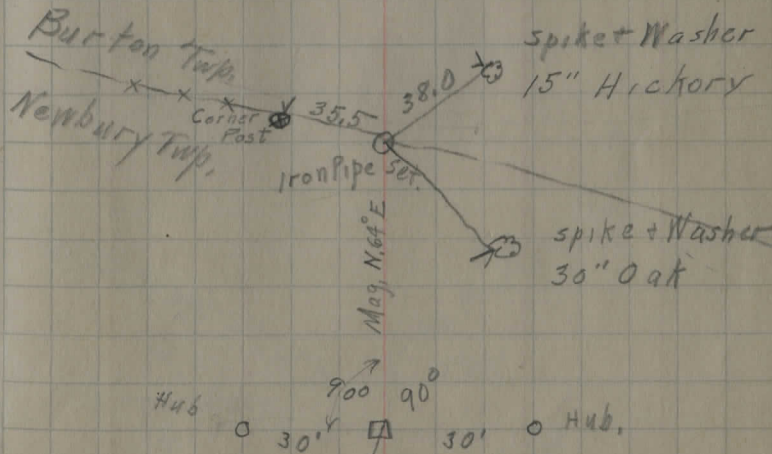 Burton Twp.
Newbury Twp.
Corner
Post
35.5
38.0
spike + Washer
15" Hickory
Iron Pipe set.
spike + Washer
30" Oak
Mag. N.64°E
90°
Hub
30'
30'
Hub.